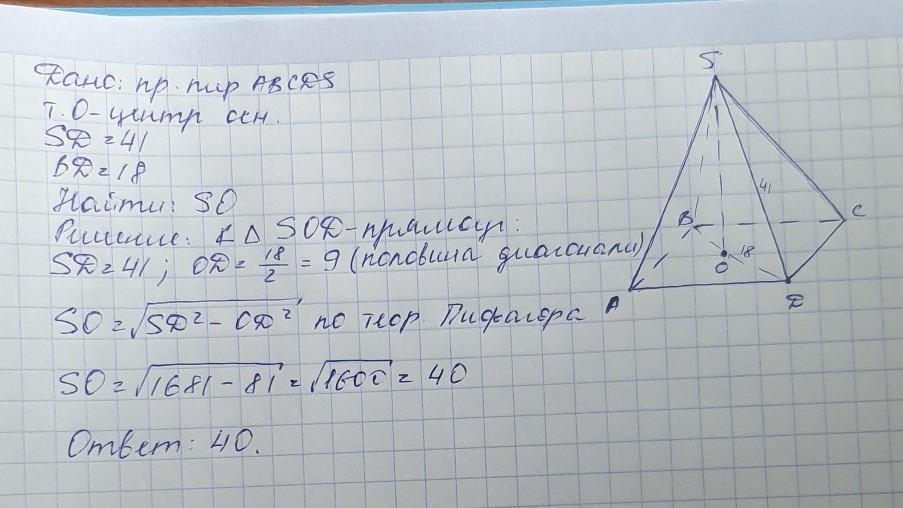 Дано: пр. пир ABCDS
т. O - центр осн.
SD = 41
BD = 18
Найти: SO
Решение: △ SOD - прямоуг:
SD = 41; OD = 18/2 = 9 (половина диагонали)
SO = √SD² - OD² по теор. Пифагора
SO = √1681 - 81 = √1600 = 40
Ответ: 40.
S
41
B
C
18
O
A
D